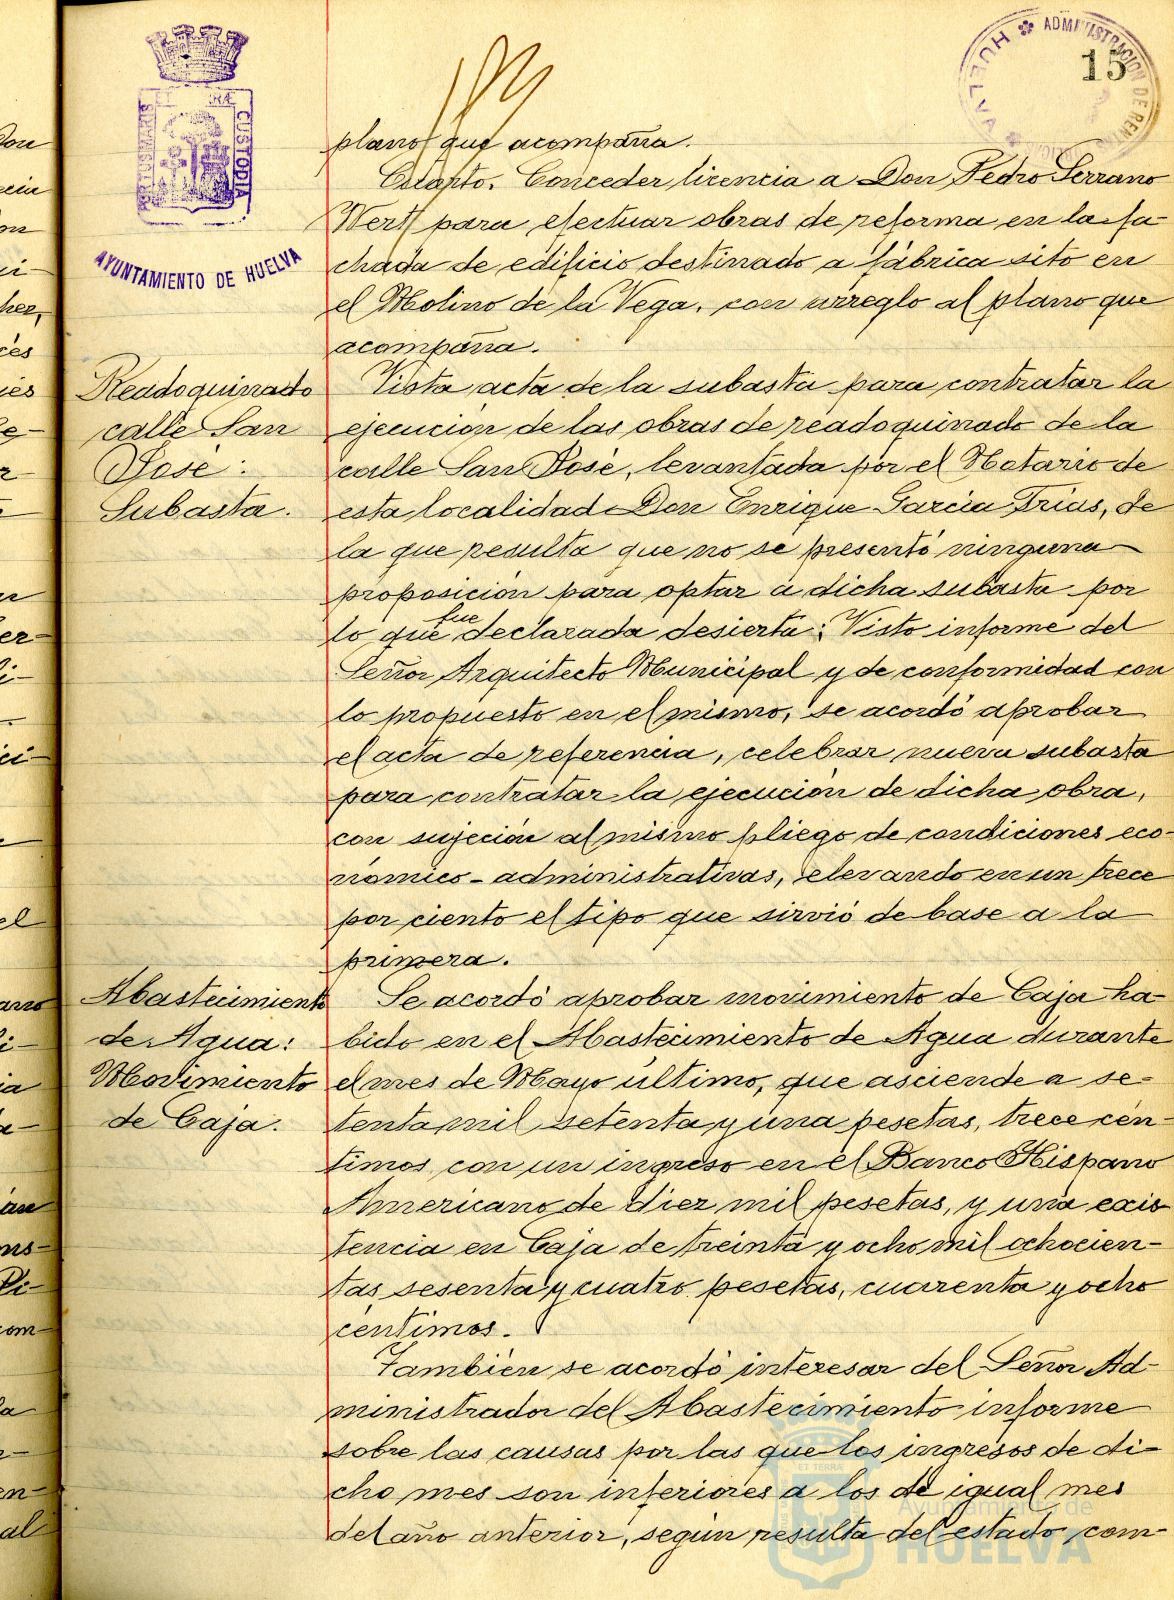 15
ADMINISTRACION DE RENTAS
HUELVA
PORTUS MARIS ET TERRÆ CUSTODIA
AYUNTAMIENTO DE HUELVA
plano que acompaña.
Cuarto. Conceder licencia a Don Pedro Serrano
Wert para efectuar obras de reforma en la fa-
chada de edificio destinado a fábrica sito en
el Molino de la Vega, con arreglo al plano que
acompaña.
Readoquinado
calle San
José:
Subasta.
Vista acta de la subasta para contratar la
ejecución de las obras de readoquinado de la
calle San José, levantada por el Notario de
esta localidad Don Enrique Garcia Frias, de
la que resulta que no se presentó ninguna
proposición para optar a dicha subasta por
lo que fue declarada desierta: Visto informe del
Señor Arquitecto Municipal y de conformidad con
lo propuesto en el mismo, se acordó aprobar
el acta de referencia, celebrar nueva subasta
para contratar la ejecución de dicha obra,
con sujeción al mismo pliego de condiciones eco-
nómico-administrativas, elevando en un trece
por ciento el tipo que sirvió de base a la
primera.
Abastecimiento
de Agua:
Movimiento
de Caja.
Se acordó aprobar movimiento de Caja ha-
bido en el Abastecimiento de Agua durante
el mes de Mayo último, que asciende a se-
tenta mil setenta y una pesetas, trece cén-
timos, con un ingreso en el Banco Hispano
Americano de diez mil pesetas, y una exis
tencia en Caja de treinta y ocho mil ochocien-
tas sesenta y cuatro pesetas, cuarenta y ocho
céntimos.
También se acordó interesar del Señor Ad-
ministrador del Abastecimiento informe
sobre las causas por las que los ingresos de di-
cho mes son inferiores a los de igual mes
del año anterior, según resulta del estado com-
Ayuntamiento de
HUELVA